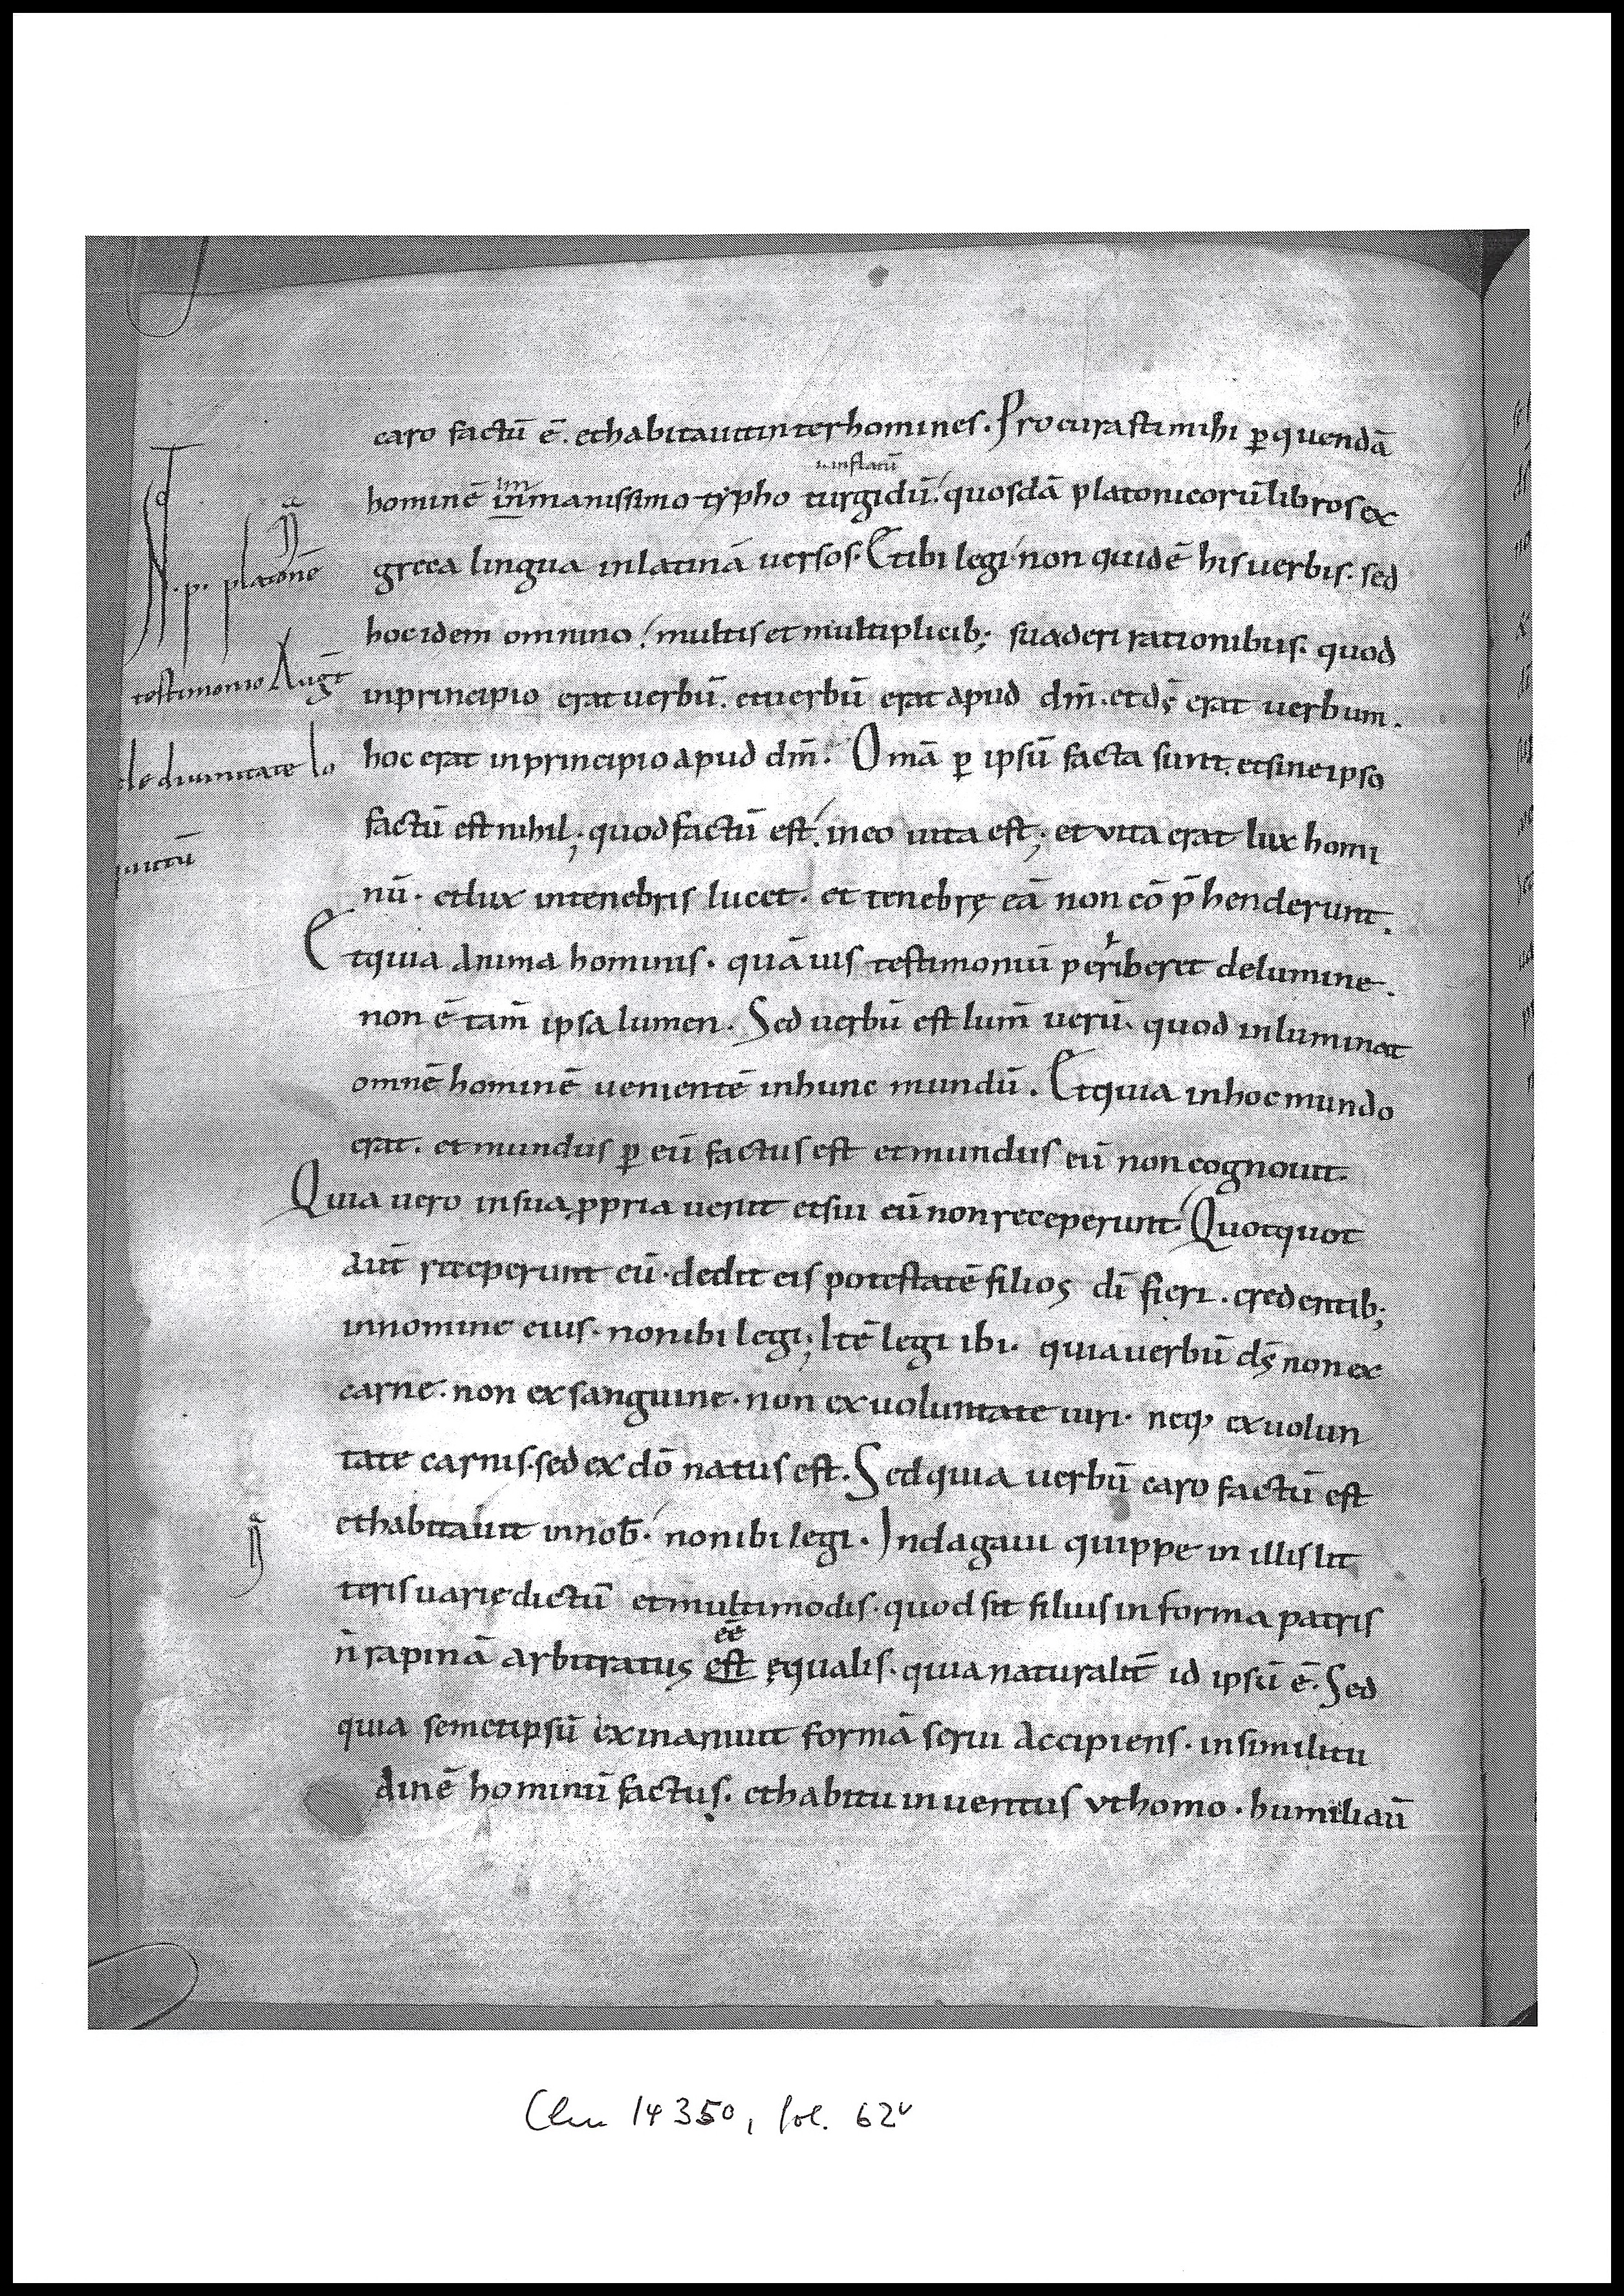 caro factū ē. et habitauit inter homines. Procurasti mihi ꝑ quendā
.i. inflatū
im
hominē inmanissimo typho turgidū. quosdā platonicorū libros ex
greca lingua in latinā versos. Et ibi legi non quidē his uerbis. sed
hoc idem omnino multis et multiplicib; suaderi rationibus. quod
in principio erat uerbū. et uerbū erat apud dm̄. et ds̄ erat uerbum.
hoc erat in principio apud dm̄. Omā ꝑ ipsū facta sunt. et sine ipso
factū est nihil; quod factū est. in eo uita est; et vita erat lux homi
nū. et lux in tenebris lucet. et tenebrę eā non cō p̄henderunt.
Et quia anima hominis. quāuis testimoniū periberet de lumine.
non ē tam̄ ipsa lumen. Sed uerbū est lum̄ uerū. quod inluminat
omnē hominē uenientē in hunc mundū. Et quia in hoc mundo
erat. et mundus ꝑ eū factus est et mundus eū non cognouit.
Quia uero in sua ꝓpria uenit et sui eū non receperunt. Quotquot
aut̄ receperunt eū. dedit eis potestatē filios dī fieri. credentib;
in nomine eius. non ibi legi; Itē legi ibi. quia uerbū ds̄ non ex
carne. non ex sanguine. non ex uoluntate uiri. neq; ex uolun
tate carnis. sed ex dō natus est. Sed quia uerbū caro factū est
et habitauit in nob̄. non ibi legi. Indagaui quippe in illis lit
teris uarie dictū et multimodis. quod sit filius in forma patris
ēē
n̄ rapinā arbitratus est ęqualis. quia naturalit̄ id ipsū ē. Sed
quia semetipsū exinaniuit formā serui accipiens. in similitu
dinē hominū factus. et habitu inuentus vt homo. humiliaū
.p. platonē
testimonio Augt̄
de diuinitate lo
Clm 14350, fol. 62v